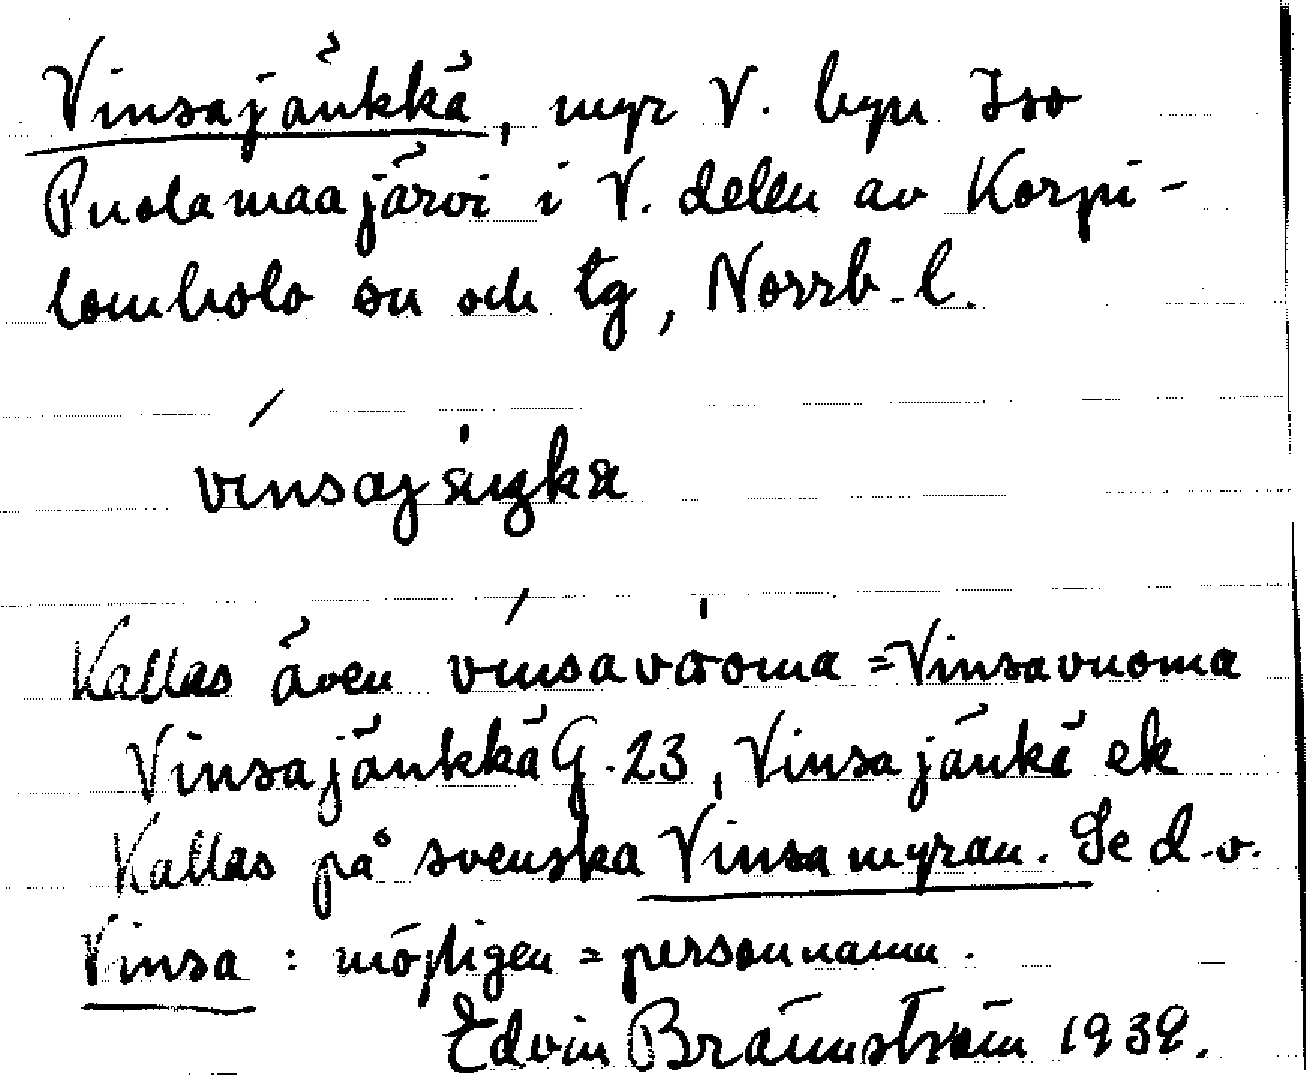 Vinsajänkkä, myr V. byn Iso
Puolamaajärvi i V. delen av Korpi-
lombolo sn och tg, Norrb. l.
vinsajäŋkä
Kallas även vinsavuoma = Vinsavuoma
Vinsajänkkä G. 23, Vinsajänkä ek
Kallas på svenska Vinsamyran. Se d.o.
Vinsa : möjligen = personnamn.
Edvin Brännström 1939.